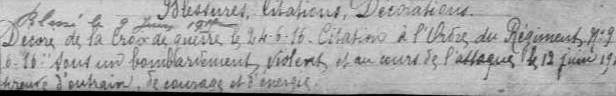 Blessures, Citations, Décorations.
Blessé le 9 juin
Décoré de la Croix de guerre le 24-6-16. Citation à l'Ordre du Régiment, N: 9
6-16 "Sous un bombardement violent et au cours de l'attaque le 12 juin 19
preuve d'entrain, de courage et d'énergie.